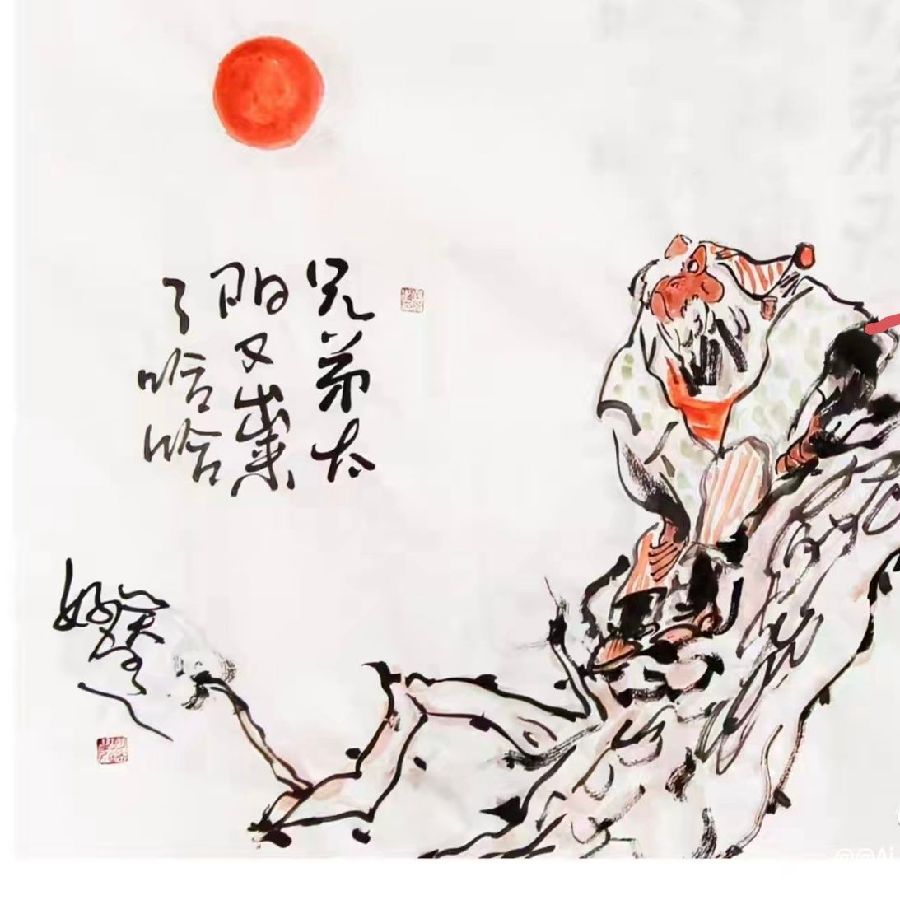 兄弟太
阳又出来
了哈哈